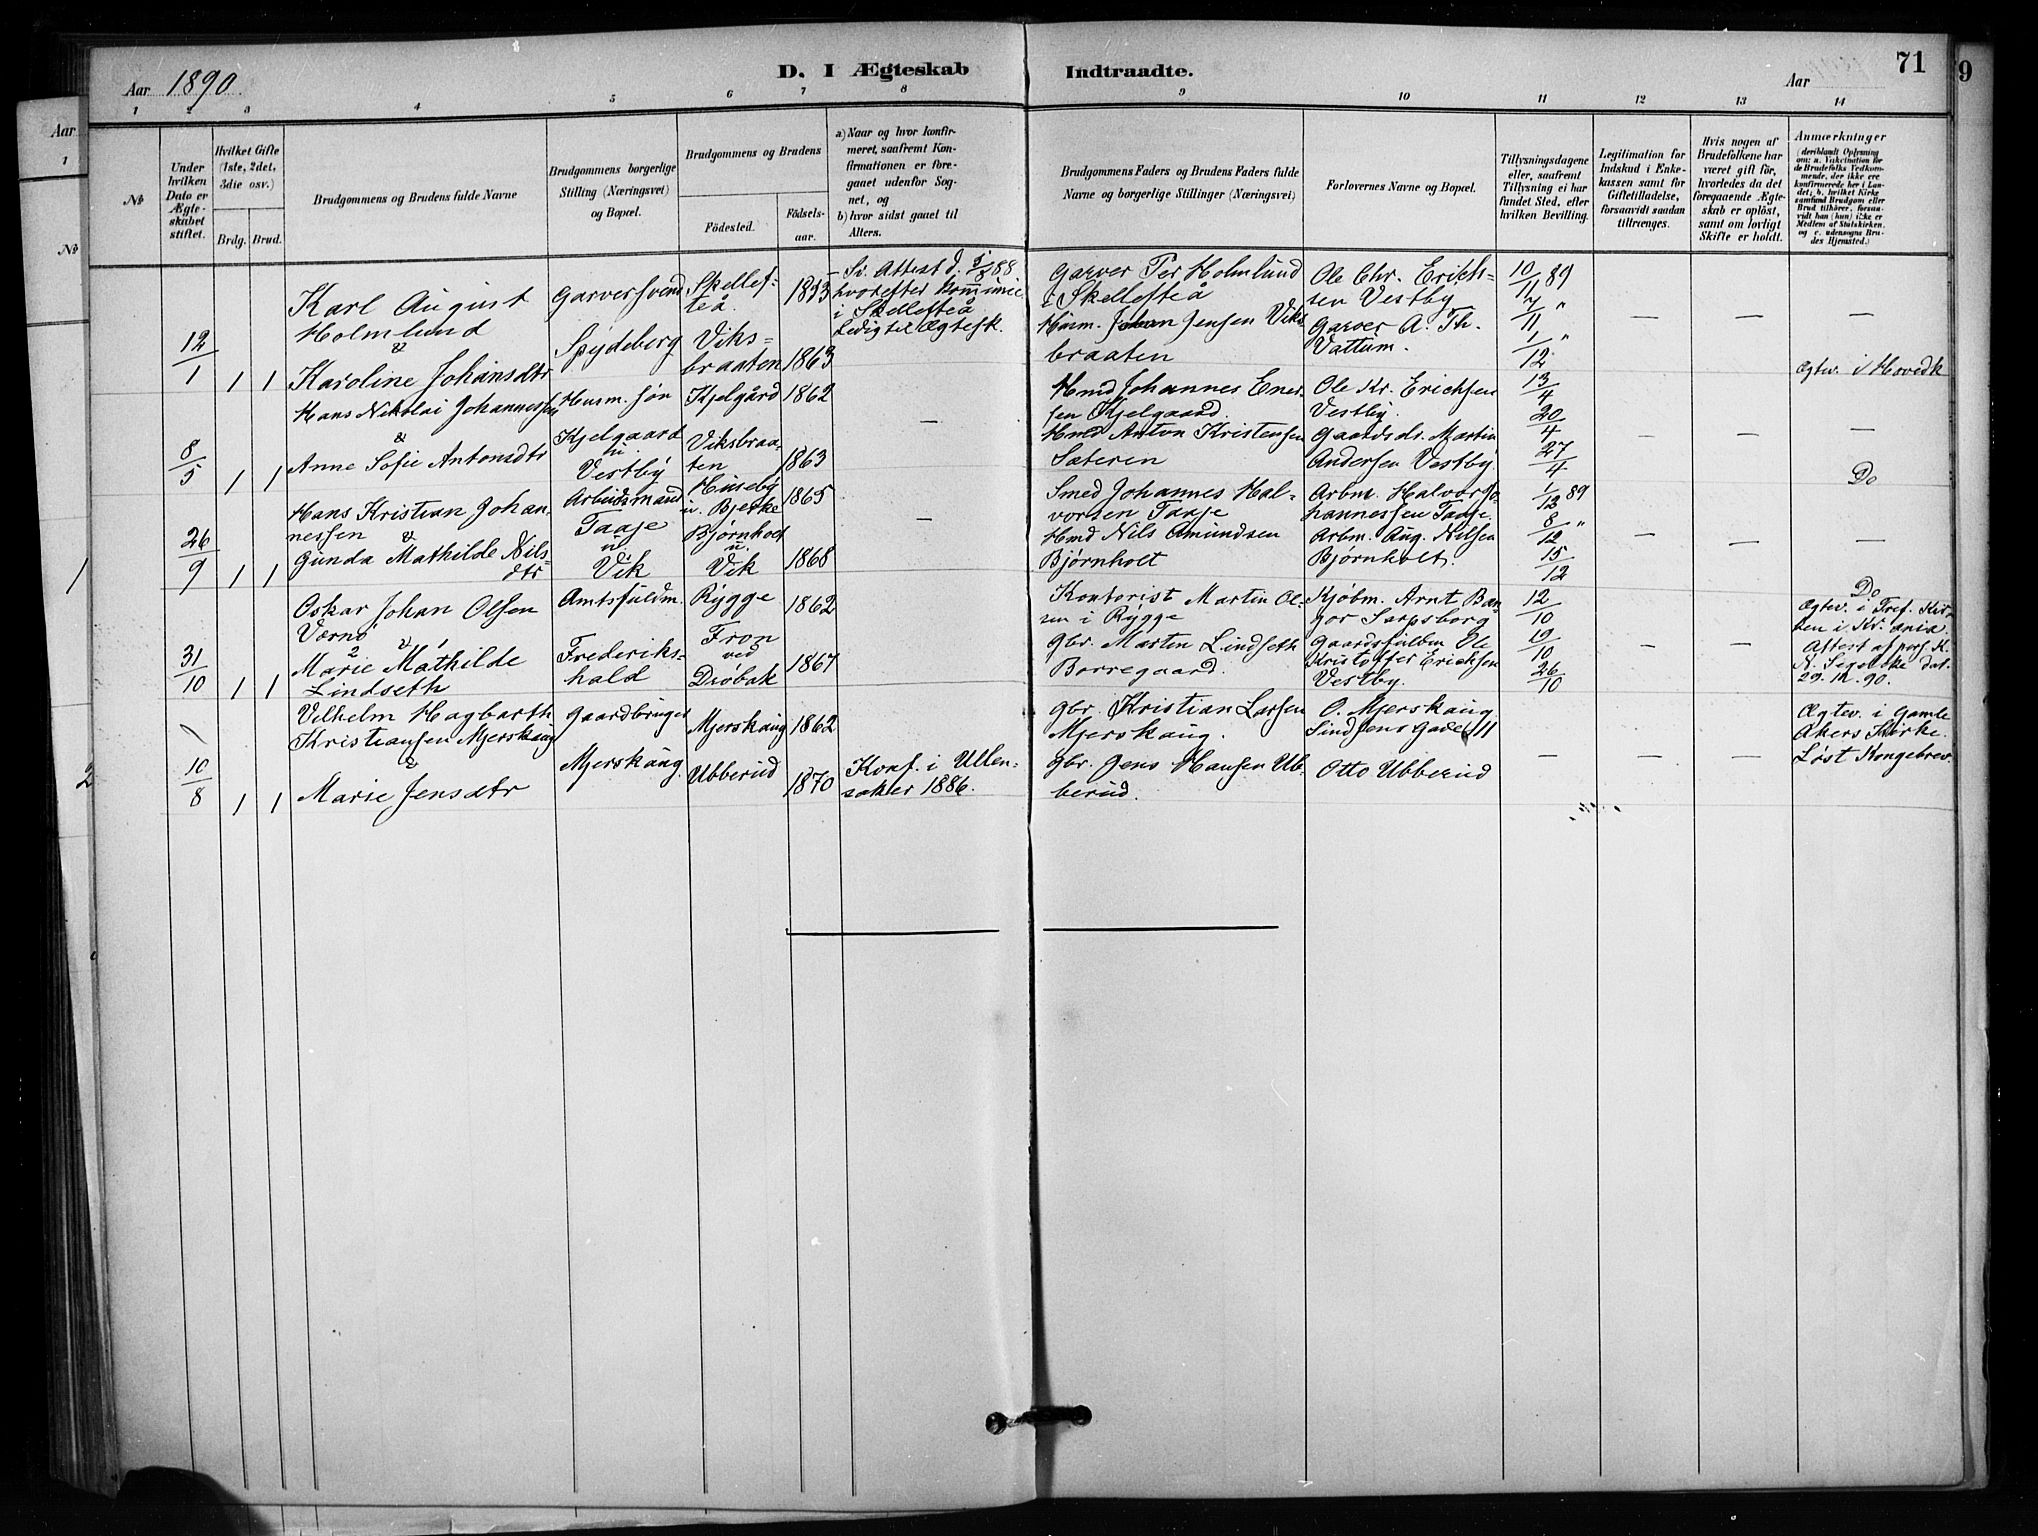 71
9
Aar 1890.
D. I Ægteskab
Indtraadte.
Aar
1 2 3 4 5 6 7 8 9 10 11 12 13 14
Aar
1
№
№
Under hvilken Dato er Ægteskabet stiftet.
Hvilket Gifte (1ste, 2det, 3die osv.)
Brdg. Brud.
Brudgommens og Brudens fulde Navne
Brudgommens borgerlige Stilling (Næringsvei) og Bopæl.
Brudgommens og Brudens
Fødested.
Fødselsaar.
a) Naar og hvor konfirmeret, saafremt Konfirmationen er foregaaet udenfor Sognet, og
b) hvor sidst gaaet til Alters.
Brudgommens Faders og Brudens Faders fulde Navne og borgerlige Stillinger (Næringsvei)
Forlovernes Navne og Bopæl.
Tillysningsdagene eller, saafremt Tillysning ei har fundet Sted, efter hvilken Bevilling.
Legitimation for Indskud i Enkekassen samt for Giftetilladelse, forsaavidt saadan tiltrænges.
Hvis nogen af Brudefolkene har været gift før, hvorledes da det foregaaende Ægteskab er opløst, samt om lovligt Skifte er holdt.
Anmærkninger (deriblandt Oplysning om: a. Vakcination for de Brudefolks Vedkommende, der ikke ere konfirmerede her i Landet; b. hvilket Kirkesamfund Brudgom eller Brud tilhører, forsaavidt han (hun) ikke er Medlem af Statskirken, og c. udensogns Brudes Hjemsted.)
12/1 1 1
Karl August
Holmlund
&
Karoline Johansdtr
Garversvend
Spydeberg
Skellefteå.
Viksbraaten
1853
1863
Sv. Attest d. 5/8 88
hvorefter kommunic
i Skellefteå
Ledig til Ægtesk.
Garver Per Holmlund
i Skellefteå
Husm. Johan Jensen Viksbraaten
Ole Chr. Erichsen Vestby
Garver A. Th.
Vattum.
10/11 89
/11 "
1/12 "
— —
—
Ægtev. i Hovedk
8/5 1 1
Hans Nikolai Johannessen
&
Anne Sofie Antonsdtr
Husm. søn
Kjelgaard
u.
Vestby
Kjelgård
Viksbraaten
1862
1863
—
Hmd Johannes Enersen Kjelgaard.
Hmd Anton Kristensen
Sæteren
Ole Kr. Erichsen
Vestby.
Gaardsdr. Martin
Andersen Vestby.
13/4
20/4
27/4
— — —
Do
1
26/9 1 1
Hans Kristian Johannessen
&
Gunda Mathilde Nilsdtr
Arbeidsmand
Taaje
u.
Vik
Huseby
u. Bjerke
Bjørnholt
u.
Vik
1865
1868
—
Smed Johannes Halvorsen Taaje
Hmd Nils Amundsen
Bjørnholt
Arbm. Halvor Johannessen Taaje.
Arbm. Aug. Nilsen
Bjørnholt.
1/12 89
8/12 "
15/12
— — —
Do
31/10 1 1
Oskar Johan Olsen
Værnø
&
Marie Mathilde
Lindseth
Amtsfuldm.
Frederikshald
Rygge
Fron
ved
Drøbak
1862
1867
Kontorist Martin Olsen i Rygge
Gbr. Martin Lindseth
Borregaard.
Kjøbm. Arnt Bangor Sarpsborg
Gaardsfuldm. Ole
Kristoffer Erichsen
Vestby.
12/10
19/10
26/10
— —
Ægtev. i Tref. Kirken i Kr.ania
Attest af pers. K.
N. Segelcke dat.
29. 12. 90.
2
10/8 1 1
Vilhelm Hagbarth
Kristiansen Mjerskaug
&
Marie Jensdtr
Gaardbruger
Mjerskaug.
Mjerskaug
Ubberud
1862
1870
Konf. i Ullensaker 1886.
Gbr. Kristian Larsen
Mjerskaug.
Gbr. Jens Hansen Ubberud.
O. Mjerskaug
Otto Ubberud
— — —
Ægtev. i Gamle
Akers Kirke.
Løst Kongebrev.